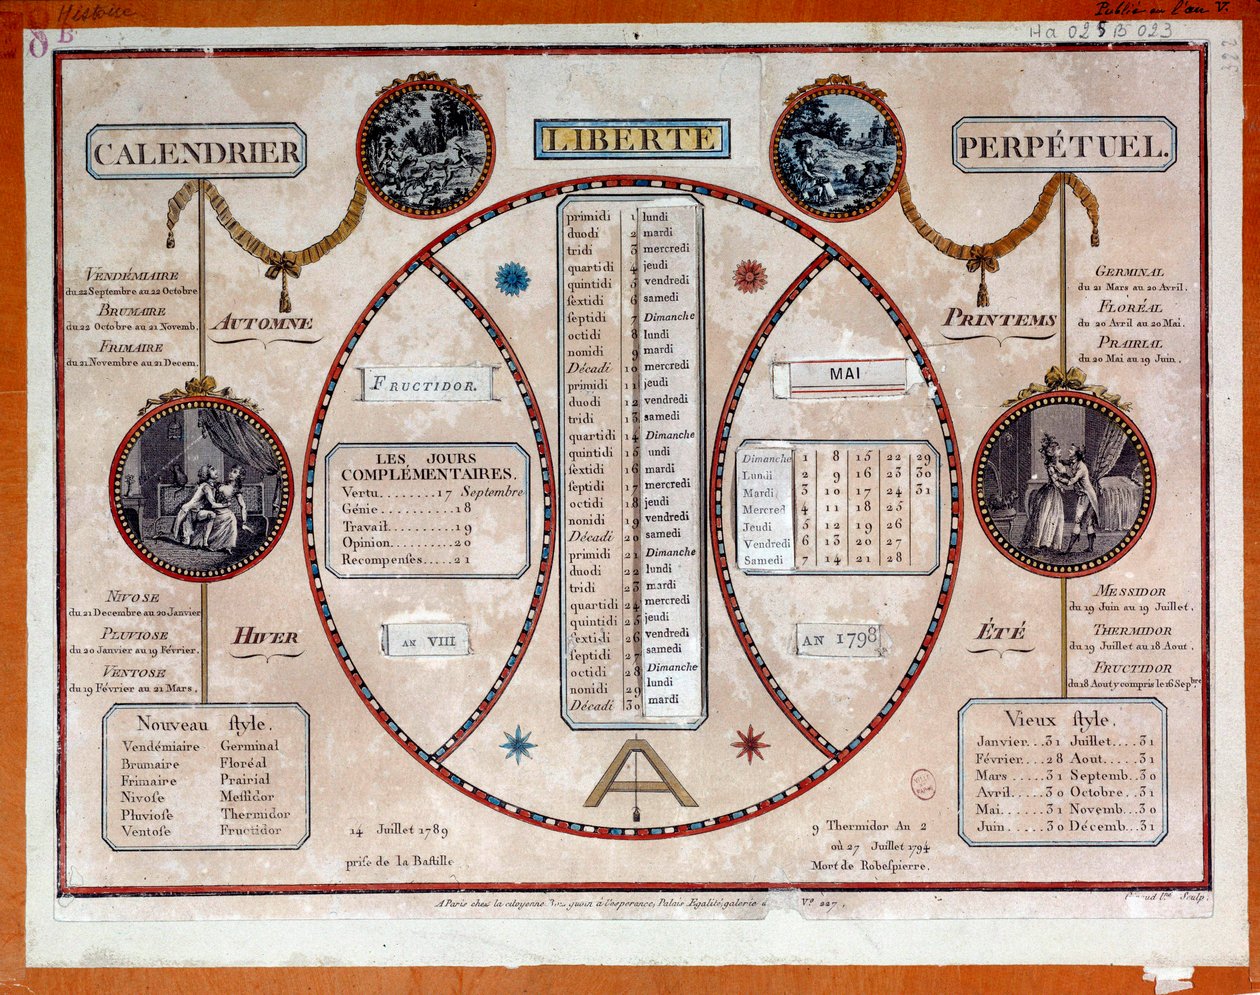 Histoire
Publié en l'an V.
8 B
Ha 025 B 023
322
CALENDRIER
LIBERTE
PERPÉTUEL.
VENDÉMIAIRE
du 22 Septembre au 22 Octobre
BRUMAIRE
du 22 Octobre au 21 Novemb.
FRIMAIRE
du 21 Novembre au 21 Decem.
AUTOMNE
NIVOSE
du 21 Decembre au 20 Janvier
PLUVIOSE
du 20 Janvier au 19 Février.
VENTOSE
du 19 Février au 21 Mars.
HIVER
Nouveau ſtyle.
Vendémiaire Germinal
Brumaire Floréal
Frimaire Prairial
Nivoſe Meſſidor
Pluvioſe Thermidor
Ventoſe Fructidor
FRUCTIDOR.
LES JOURS
COMPLÉMENTAIRES.
Vertu........17 Septembre
Génie..........18
Travail.........19
Opinion.........20
Recompenſes.....21
AN VIII
primidi 1 lundi
duodi 2 mardi
tridi 3 mercredi
quartidi 4 jeudi
quintidi 5 vendredi
ſextidi 6 samedi
ſeptidi 7 Dimanche
octidi 8 lundi
nonidi 9 mardi
Décadi 10 mercredi
primidi 11 jeudi
duodi 12 vendredi
tridi 13 samedi
quartidi 14 Dimanche
quintidi 15 undi
ſextidi 16 mardi
ſeptidi 17 mercredi
octidi 18 jeudi
nonidi 19 vendredi
Décadi 20 samedi
primidi 21 Dimanche
duodi 22 lundi
tridi 23 mardi
quartidi 24 mercredi
quintidi 25 jeudi
ſextidi 26 vendredi
ſeptidi 27 samedi
octidi 28 Dimanche
nonidi 29 lundi
Décadi 30 mardi
MAI
Dimanche 1 8 15 22 29
Lundi 2 9 16 23 30
Mardi 3 10 17 24 31
Mercred 4 11 18 25
Jeudi 5 12 19 26
Vendredi 6 13 20 27
Samedi 7 14 21 28
AN 1798
GERMINAL
du 21 Mars au 20 Avril.
FLORÉAL
du 20 Avril au 20 Mai.
PRAIRIAL
du 20 Mai au 19 Juin.
PRINTEMS
MESSIDOR
du 19 Juin au 19 Juillet.
THERMIDOR
du 19 Juillet au 18 Aout.
FRUCTIDOR
du 18 Aout y compris le 16 Sepbre.
ÉTÉ
Vieux ſtyle.
Janvier...31 Juillet....31
Février...28 Aout.....31
Mars.....31 Septemb..30
Avril.....30 Octobre..31
Mai......31 Novemb..30
Juin.....30 Décemb...31
14 Juillet 1789
priſe de la Baſtille
9 Thermidor An 2
ou 27 Juillet 1794
Mort de Robeſpierre.
A Paris chez la citoyenne guoin à l'esperance, Palais Egalité, galerie d No. 227.
Sculp.